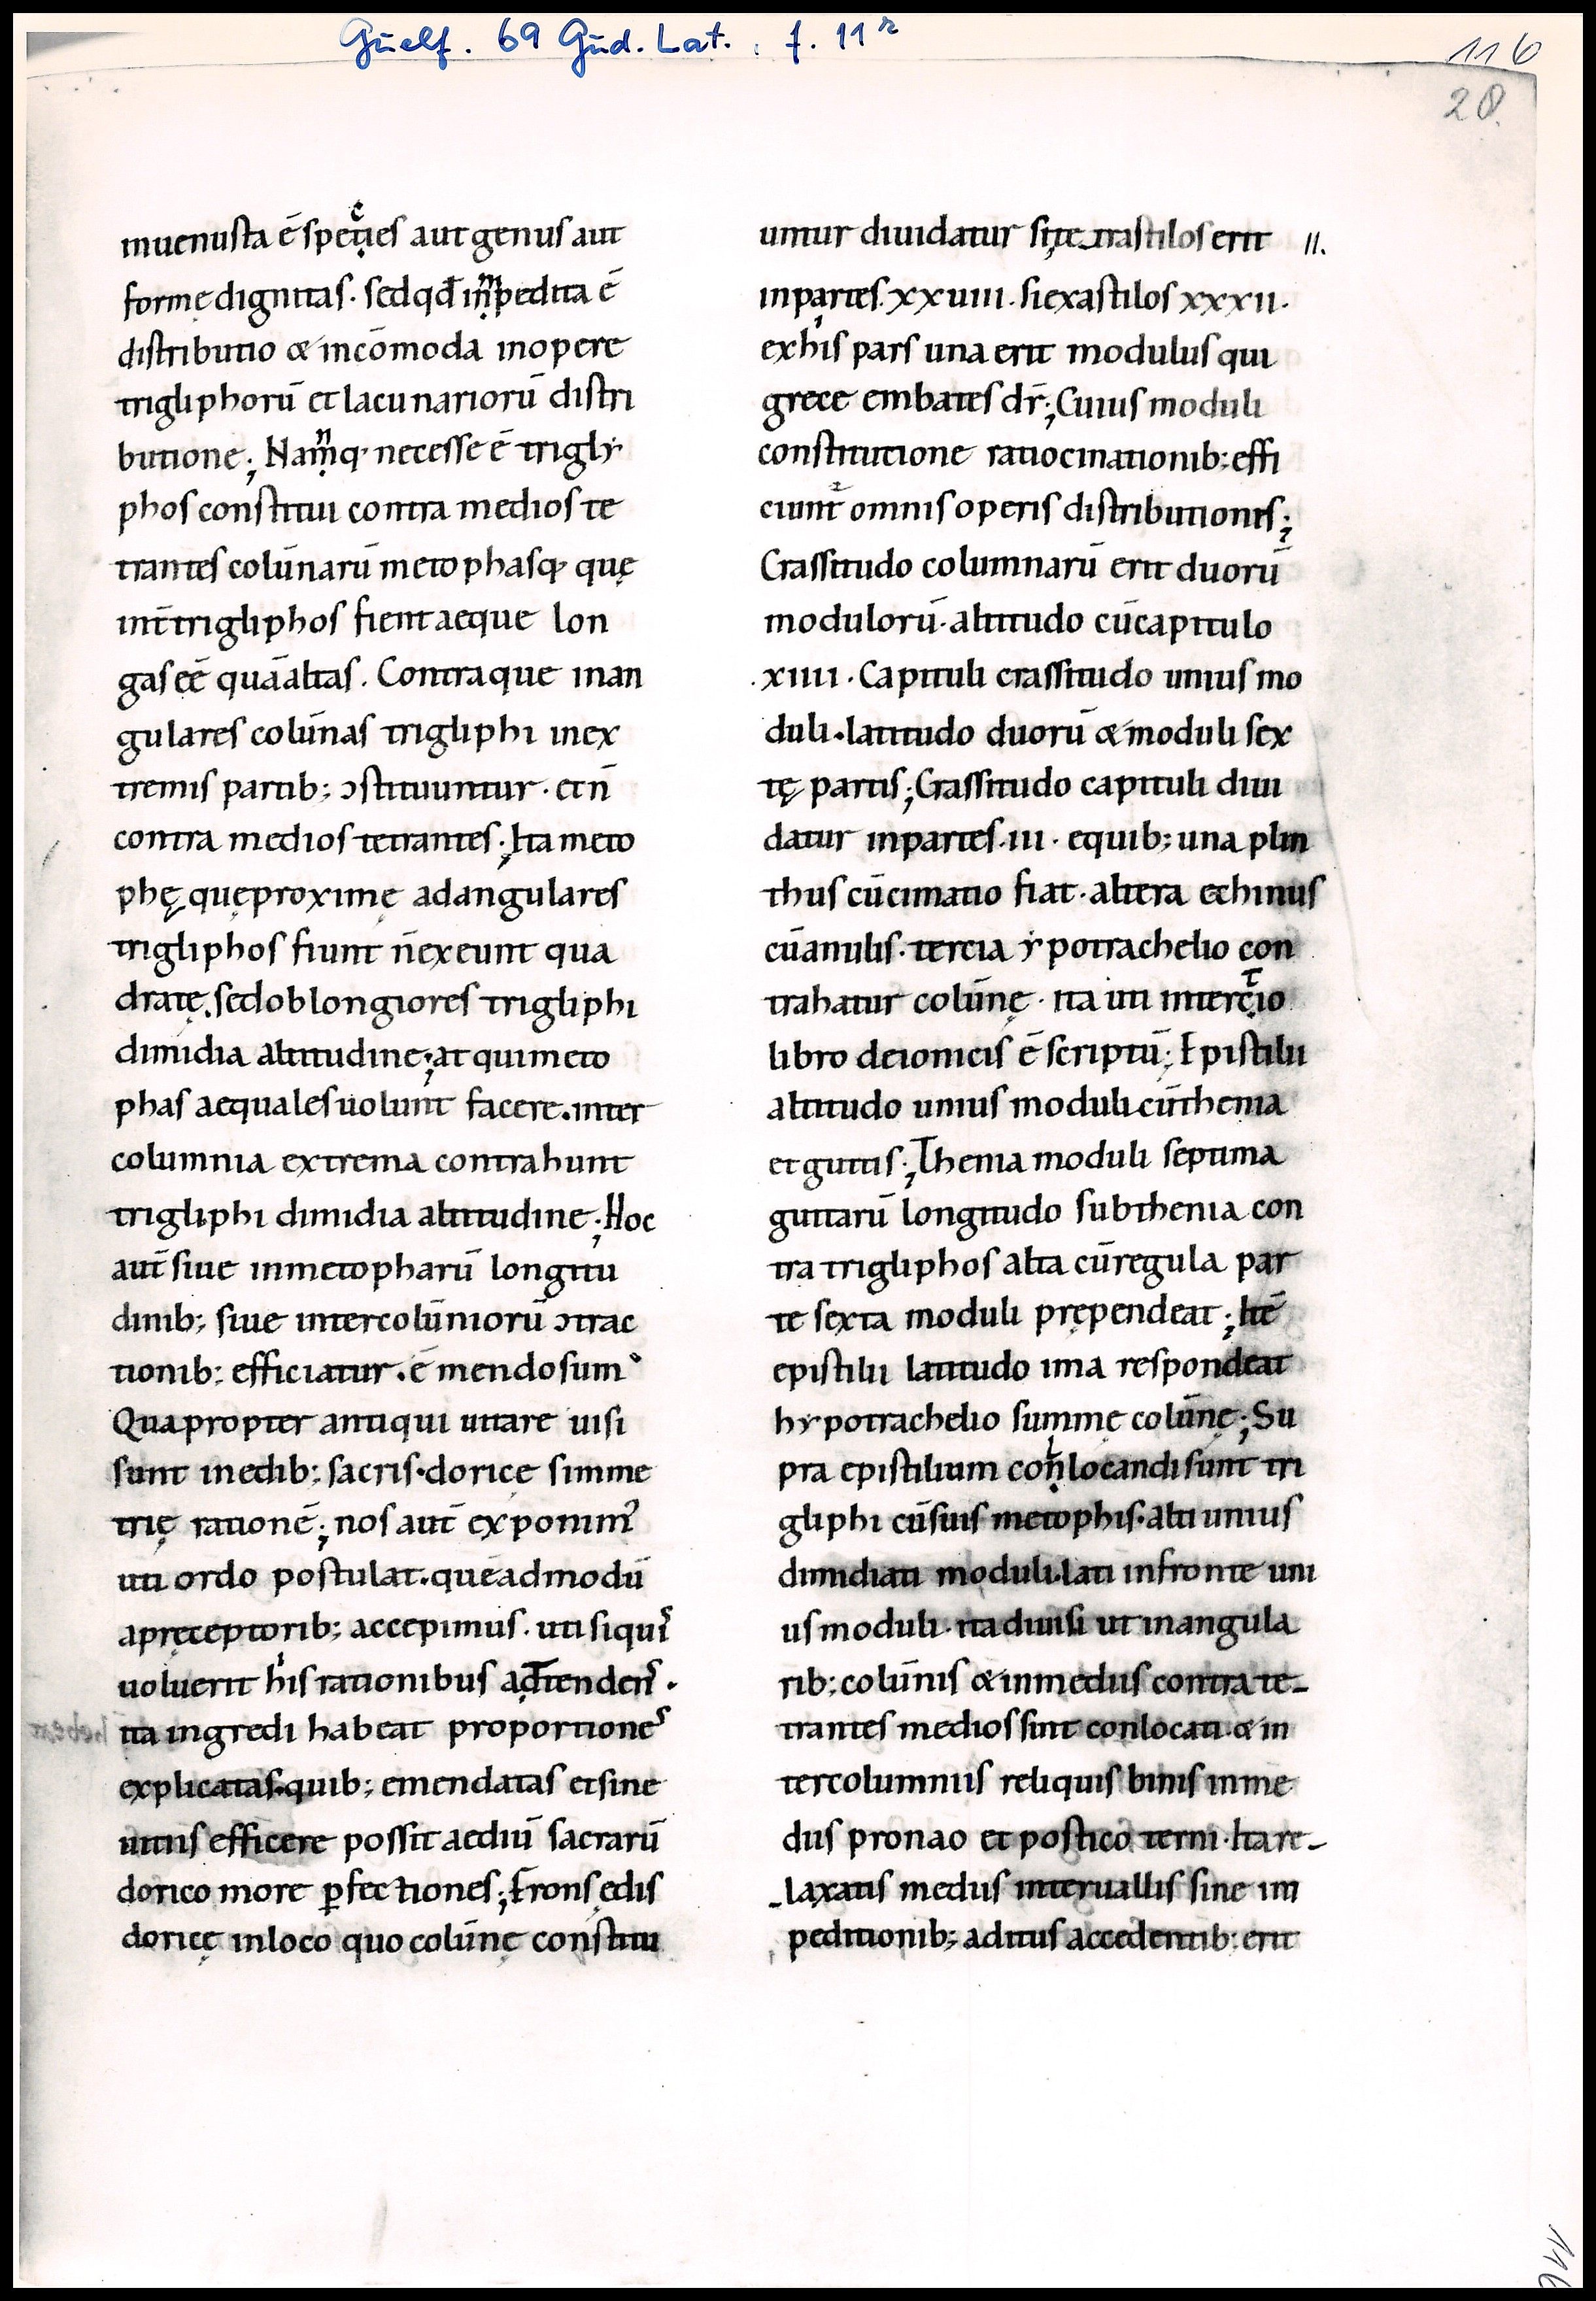 Guelf. 69 Gud. Lat. , f. 11r
116
28.
inuenusta ē speties aut genus aut
forme dignitas. sed qđ inpedita ē
distributio & incōmoda inopere
trigliphorū et lacunariorū distri
butione; Namq; necesse ē trigly
phos constitui contra medios te
trantes colūnarū metophasq; quę
int̄ trigliphos fient aeque lon
gas eē quā altas. Contraque inan
gulares colūnas trigliphi inex
tremis partib; ɔstituuntur. et n̄
contra medios tetrantes; Ita meto
phę quę proximę adangulares
trigliphos fiunt n̄ exeunt qua
dratę. sed oblongiores trigliphi
dimidia altitudine; at qui meto
phas aequales uolunt facere. inter
columnia extrema contrahunt
trigliphi dimidia altitudine; Hoc
aut̄ siue inmetopharū longitu
dinib; siue intercolūniorū ɔtrac
tionib; efficiatur. ē mendosum
Quapropter antiqui uitare uisi
sunt inedib; sacris. doricę simme
trię rationē; nos aut̄ exponim
uti ordo postulat. quēadmodū
apręceptorib; accepimus. uti siquis
uoluerit his rationibus adtendens.
ita ingredi habeat proportiones
explicatas. quib; emendatas et sine
uitiis efficere possit aediū sacrarū
dorico more ꝑfectiones; Frons ędis
doricę inloco quo colūnę constitu
untur diuidatur si tetrastilos erit
II.
inpartes. xxuiii. si exastilos xxxii.
exhis pars una erit modulus qui
grece embates dr̄; Cuius moduli
constitutione ratiocinationib; effi
ciunt omnis operis distributiones;
Crassitudo columnarū erit duorū
modulorū. altitudo cū capitulo
.xiiii. Capituli crassitudo unius mo
duli. latitudo duorū & moduli sex
tę partis; Crassitudo capituli diui
datur inpartes. iii. equib; una plin
thus cū cimatio fiat. altera echinus
cū anulis. tercia ypotrachelio con
trahatur colūnę. ita uti intercio
libro deionicis ē scriptū; Epistilii
altitudo unius moduli cū thenia
et guttis; Thenia moduli septima
guttarū longitudo subthenia con
tra trigliphos alta cū regula par
te sexta moduli prępendeat; Itē
epistilii latitudo ima respondeat
hypotrachelio summę colūnę; Su
pra epistilium conlocandi sunt tri
gliphi cū suis metophis. alti unius
dimidiati moduli. lati infronte uni
us moduli. ita diuisi ut inangula
rib; colūnis & inmediis contra te
trantes medios sint conlocati. & in
tercolumniis reliquis binis inme
diis pronao et postico terni. Ita re
laxatis mediis interuallis sine im
peditionib; aditus accedentib; erit
116